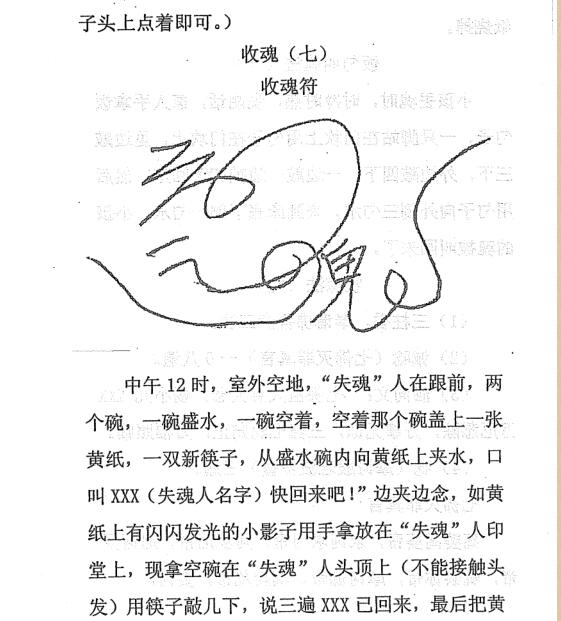 子头上点着即可。）
收魂（七）
收魂符
魂
中午12时，室外空地，“失魂”人在跟前，两
个碗，一碗盛水，一碗空着，空着那个碗盖上一张
黄纸，一双新筷子，从盛水碗内向黄纸上夹水，口
叫XXX（失魂人名字）快回来吧！”边夹边念，如黄
纸上有闪闪发光的小影子用手拿放在“失魂”人印
堂上，现拿空碗在“失魂”人头顶上（不能接触头
发）用筷子敲几下，说三遍XXX已回来，最后把黄